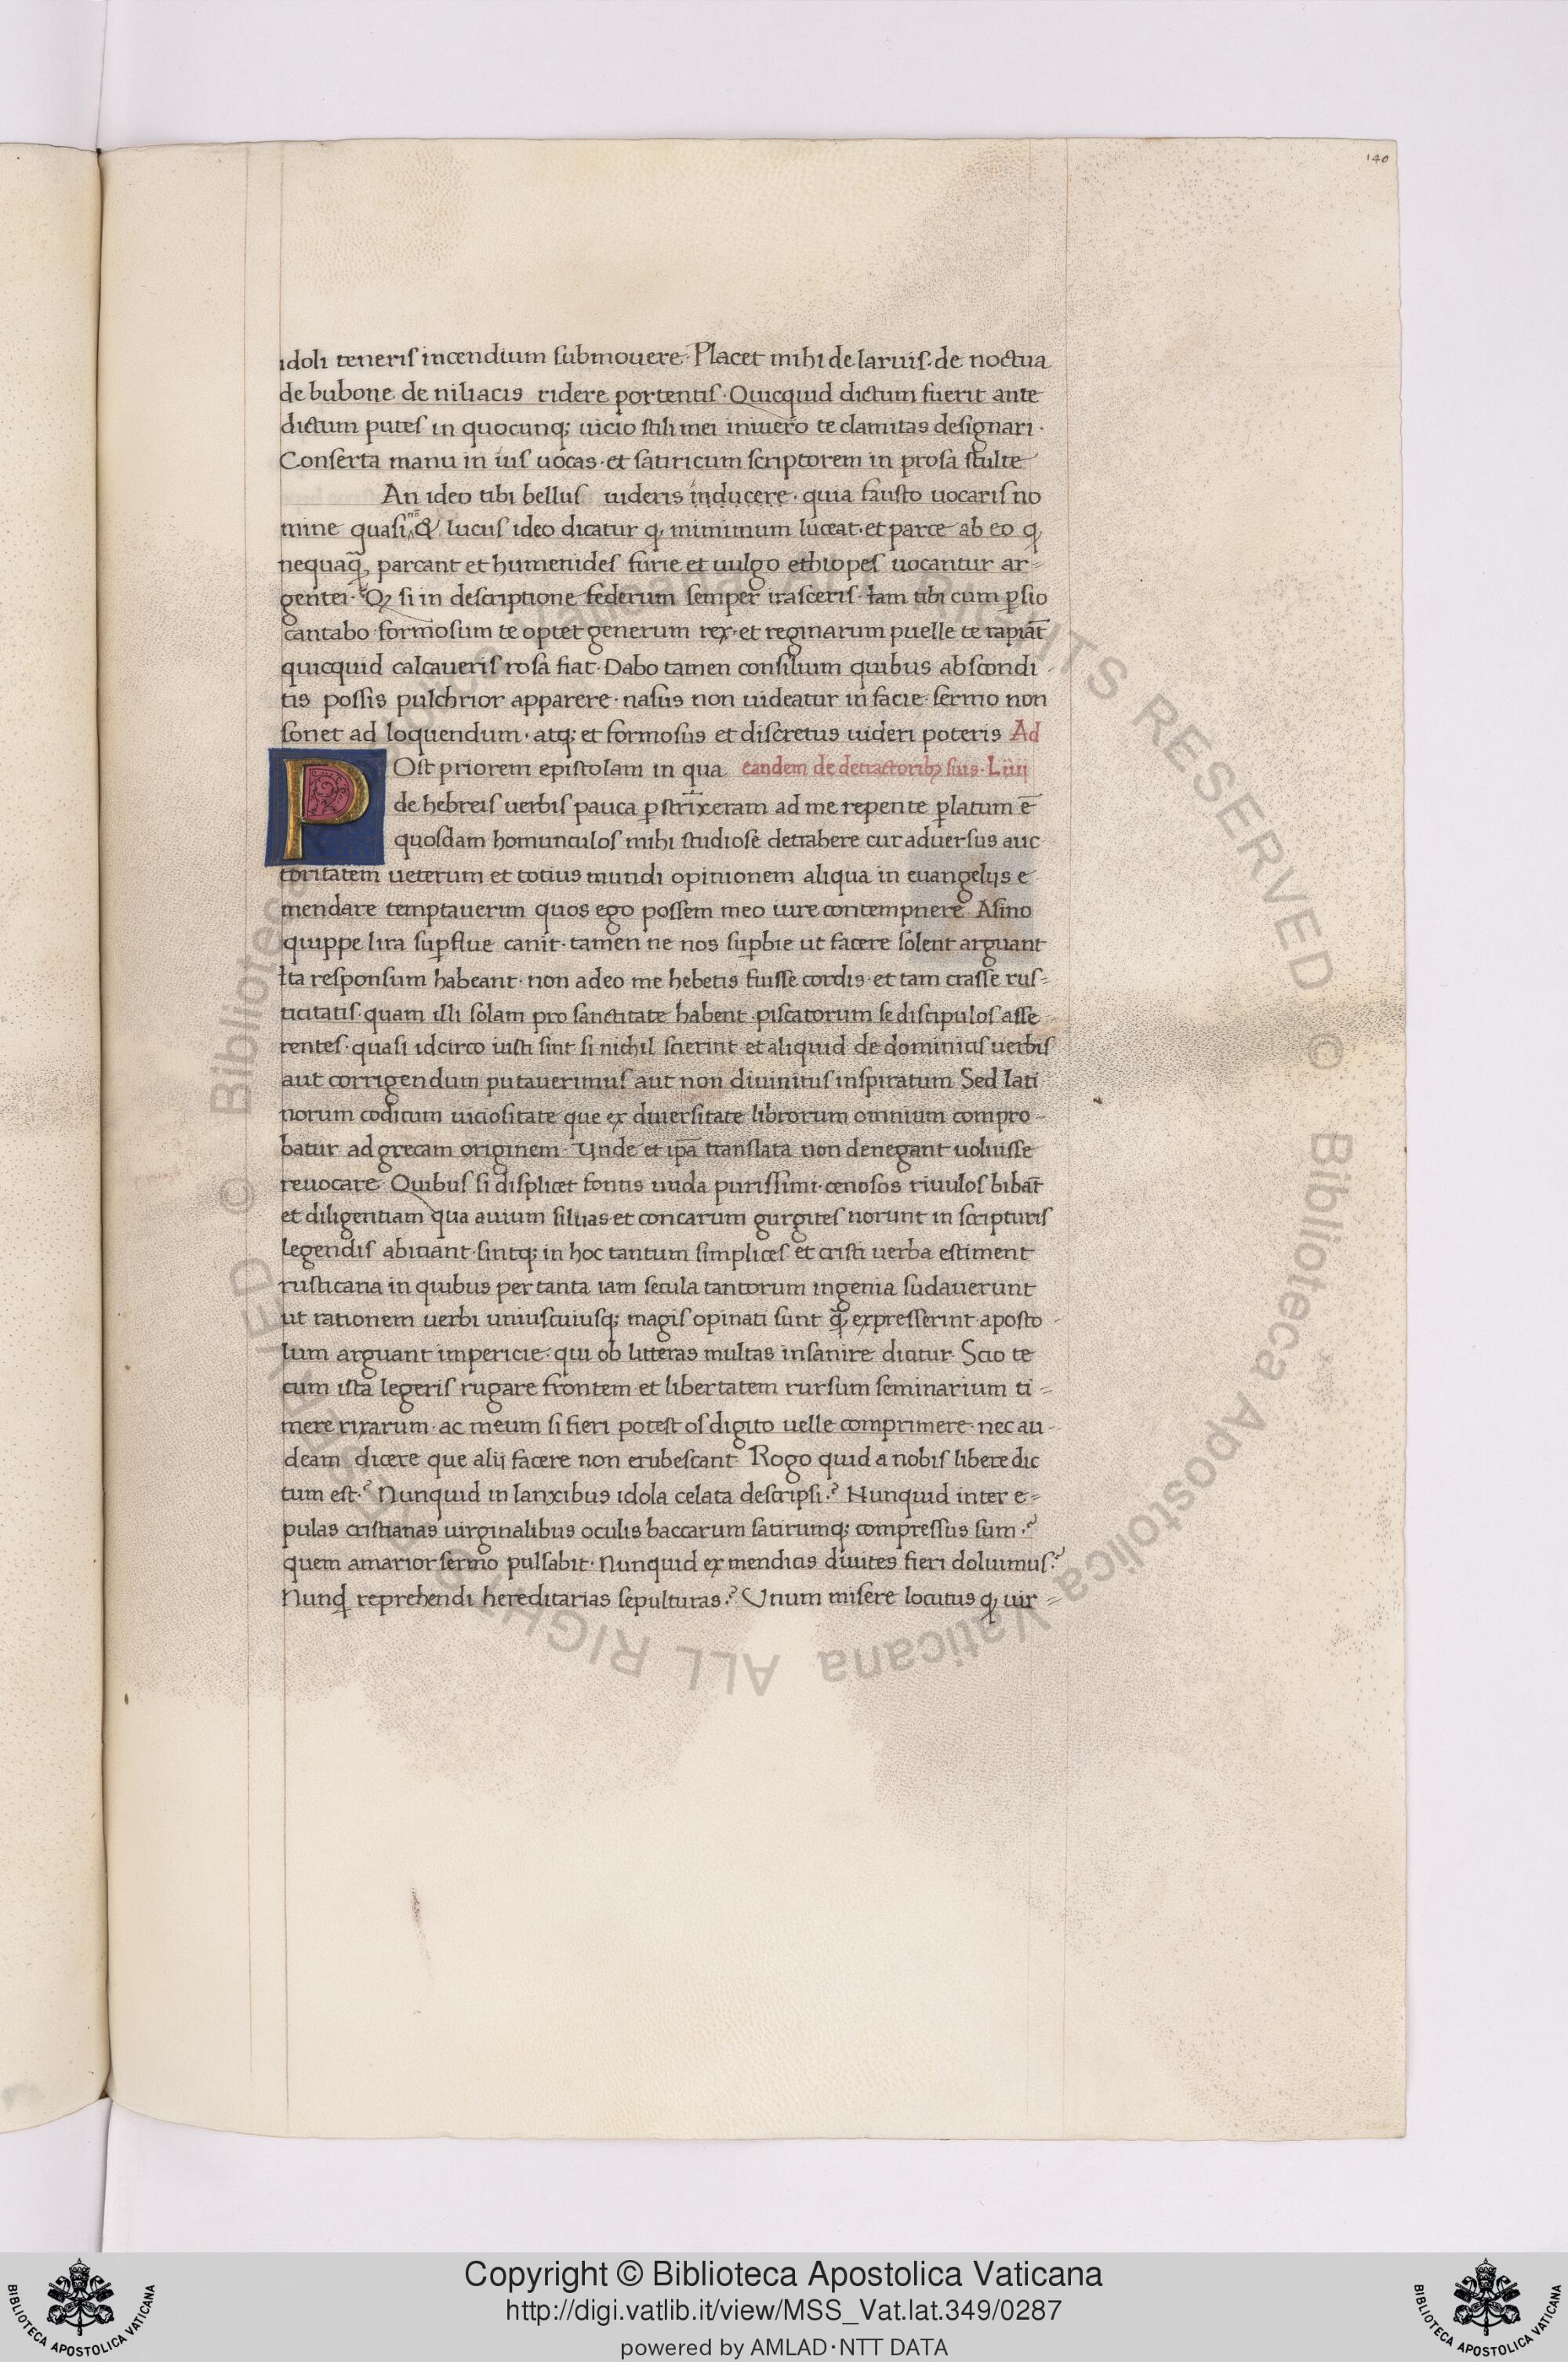 140
idoli teneris incendium submouere. Placet mihi de laruis. de noctua
de bubone de niliacis ridere portentis. Quicquid dictum fuerit ante
dictum putes in quocunq; uicio stili mei inmero te clamitas designari.
Conserta manu in ius uocas. et satiricum scriptorem in prosa stulte
An ideo tibi bellus uideris inducere. quia fausto uocaris no
mine quasi nō & lucus ideo dicatur q, mimimum luceat. et parce ab eo q,
nequaq̃, parcant et humenides furie et uulgo ethiopes uocantur ar=
gentei. si in descriptione federum semper irasceris. Iam tibi cum p̱sio
cantabo formosum te optet generum rex. et reginarum puelle te rapiāt
quicquid calcaueris rosa fiat. Dabo tamen consilium quibus abscondi-
tis possis pulchrior apparere. nasus non uideatur in facie. sermo non
sonet ad loquendum. atq; et formosus et discretus uideri poteris Ad
POst priorem epistolam in qua eandem de detractoribꝫ suis. Liiij
de hebreis uerbis pauca p̱strixeram ad me repente p̱latum ē
quosdam homunculos mihi studiose detrahere cur aduersus auc
toritatem ueterum et totius mundi opinionem aliqua in euangelijs e
mendare temptauerim quos ego possem meo iure contempnere. Asino
quippe lira sup̱flue canit. tamen ne nos sup̱bie ut facere solent arguant
Ita responsum habeant. non adeo me hebetis fuisse cordis. et tam crasse rus=
ticitatis. quam illi solam pro sanctitate habent. piscatorum se discipulos asse
rentes. quasi idcirco iusti sint si nichil scierint et aliquid de dominicis uerbis
aut corrigendum putauerimus aut non diuinitus inspiratum Sed lati
norum codicum uiciositate que ex diuersitate librorum omnium compro-
batur ad grecam originem. Unde et ip̄a translata non denegant uoluisse
reuocare. Quibus si displicet fontis unda purissimi. cenosos riuulos bibāt
et diligentiam qua auium siluas et concarum gurgites norunt in scripturis
legendis abitiant. sintq; in hoc tantum simplices et cristi uerba estiment
rusticana in quibus per tanta iam secula tantorum ingenia sudauerunt
ut rationem uerbi uniuscuiusq; magis opinati sunt q̃, expresserint. aposto-
lum arguant impericie. qui ob litteras multas insanire dicatur. Scio te
cum ista legeris rugare frontem et libertatem rursum seminarium ti=
mere rixarum. ac meum si fieri potest os digito uelle comprimere. nec au-
deam dicere que alij facere non erubescant. Rogo quid a nobis libere dic
tum est.? Nunquid in lanxibus idola celata descripsi.? Nunquid inter e=
pulas cristianas uirginalibus oculis baccarum satirumq; compressus sum.?
quem amarior sermo pulsabit. Nunquid ex mendicis diuites fieri doluimus?
Nunq̃ reprehendi hereditarias sepulturas.? Unum misere locutus q, uir=
© Biblioteca Apostolica Vaticana ALL RIGHTS RESERVED © Biblioteca Apostolica Vaticana ALL RIGHTS RESERVED
Copyright © Biblioteca Apostolica Vaticana
http://digi.vatlib.it/view/MSS_Vat.lat.349/0287
powered by AMLAD·NTT DATA
BIBLIOTECA APOSTOLICA VATICANA
BIBLIOTECA APOSTOLICA VATICANA